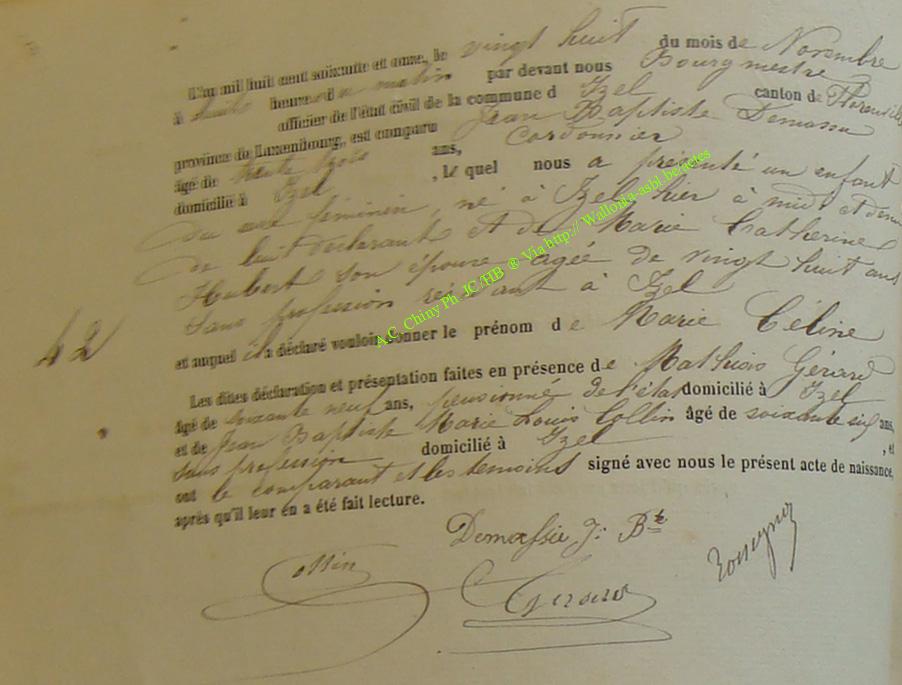 L'an mil huit cent soixante et onze, le vingt huit du mois de Novembre
à huit heures du matin par devant nous Bourgmestre
officier de l'état civil de la commune d Izel canton de Florenville
province de Luxembourg, est comparu Jean Baptiste Demasse
âgé de trente trois ans, Cordonnier
domicilié à Izel , Le quel nous a présenté un enfant
du sexe féminin, né à Izel hier à midi et demi
de luit déclarant et de Marie Catherine
Hubert son épouse agée de vingt huit ans
sans profession résidant à Izel
et auquel il a déclaré vouloir donner le prénom de Marie Céline
42
Les dites déclaration et présentation faites en présence de Mathias Gérard
âgé de soixante neuf ans, pensionné de l'état domicilié à Izel
et de Jean Baptiste Marie Louis Collin âgé de soixante six ans,
sans profession domicilié à Izel , et
ont le comparant et les témoins signé avec nous le présent acte de naissance,
après qu'il leur en a été fait lecture.
Demassie J: Bte
Collin
Gerard
A.C. Chiny Ph. JC/HB ® Via http:// Wallonia-asbl.be/actes